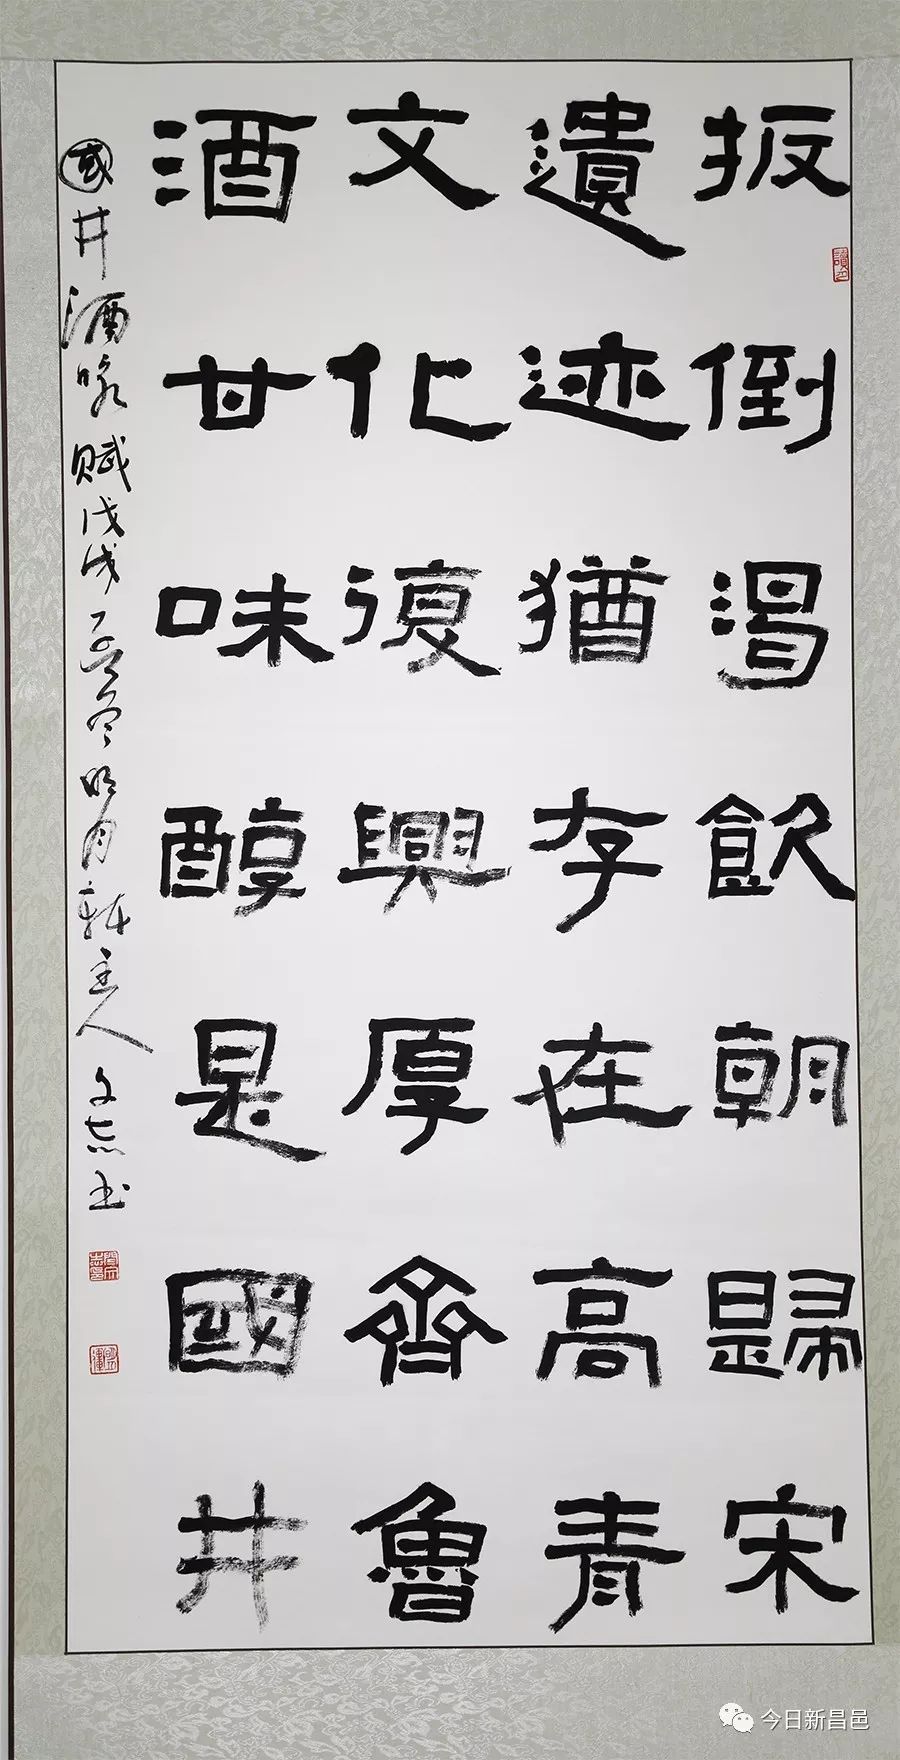 扳倒渴飲朝歸宋
遺迹猶存在高青
文化復興厚齊魯
酒甘味醇是國井
國井酒咏賦戊戌孟冬明月軒主人文志书
今日新昌邑